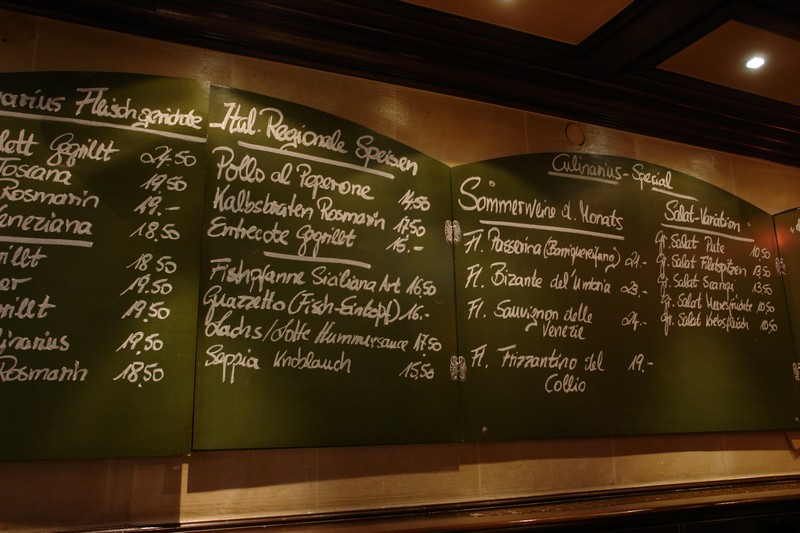 arius Fleischgerichte
lott Gegrillt 24.50
Toscana 19,50
Rosmarin 19.-
eneziana 18.50
rillt 18.50
er 19.50
rillt 19.50
linarius 19.50
Rosmarin 18,50
Ital. Regionale Speisen
Pollo al Peperone 14,50
Kalbsbraten Rosmarin 17,50
Entrecote Gegrillt 16.-
Fischpfanne Siciliana Art 16,50
Guazzetto (Fisch-Eintopf) 16.-
Lachs/ Hummersauce 17.50
Seppia Knoblauch 15,50
Culinarius-Spezial
Sommerweine d. Monats
Fl. Passerina (Barriquereifung) 21.-
Fl. Bizante del'Umbria 23.-
Fl. Sauvignon delle
Venezie 24.-
Fl. Frizzantino del 19.-
Collio
Salat-Variation
Gr. Salat Pute 10,50
Gr. Salat Filetspitzen 13,50
Gr. Salat Scampi 13.50
Gr. Salat Meeresfrüchte 10,50
Gr. Salat Krebsfleisch 10,50